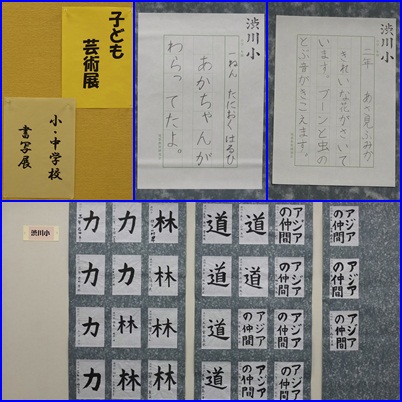 子ども
芸術展
小・中学校
書写展
渋川小
一ねん たにおく はるひ
あかちゃんが
わらってたよ。
渋川小
二年 あさ見ふみか
きれいな花がさいて
います。ブーンと虫の
とぶ音がきこえます。
渋川小
力 力 林 道 道 アジアの仲間 アジアの仲間
力 力 林 道 道 アジアの仲間 アジアの仲間
力 林 林 道 アジアの仲間 アジアの仲間 アジアの仲間
力 林 林 道 アジアの仲間 アジアの仲間